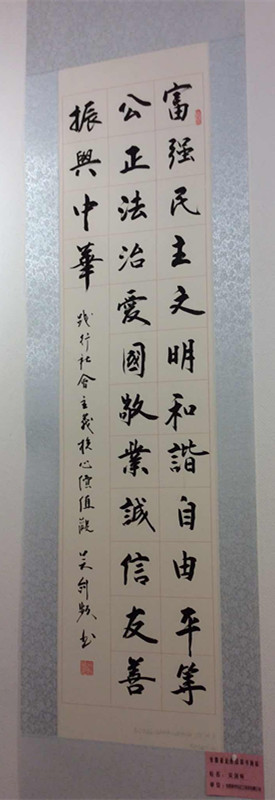 富强民主文明和諧自由平等
公正法治愛國敬業誠信友善
振興中華
践行社会主義核心價值觀